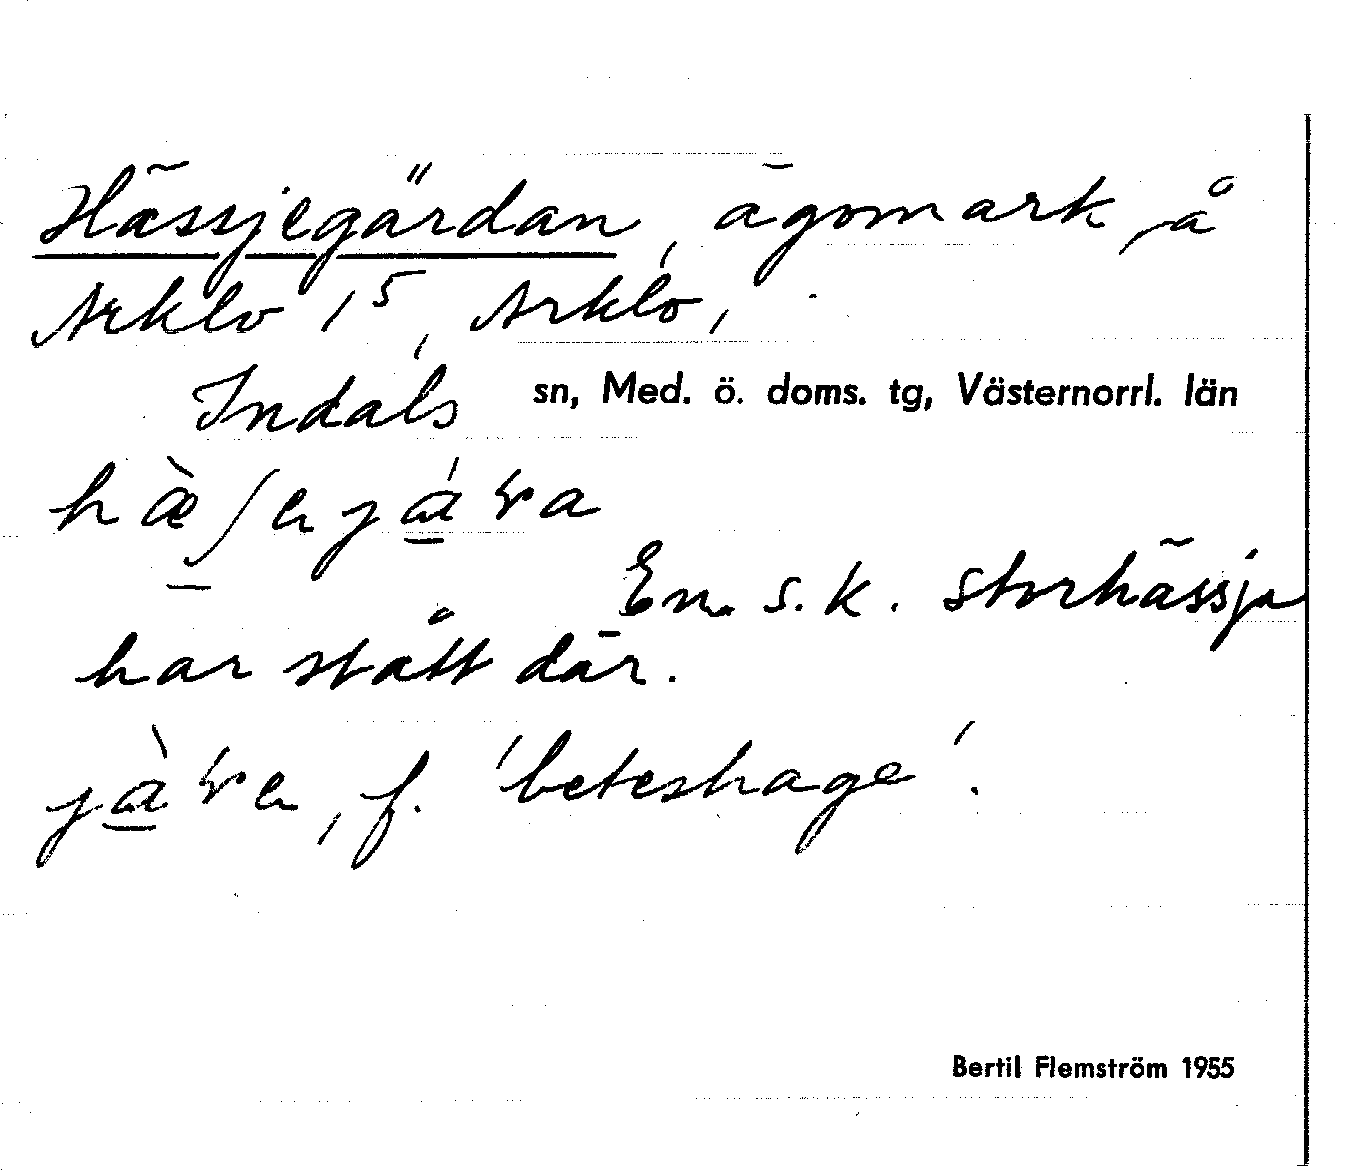 Hässjegärdan, ägomark å
Arklo 1⁵, Arklo,
Indals sn, Med. ö. doms. tg, Västernorrl. län
En s.k. storhässja
har stått där.
f. 'beteshage'.
Bertil Flemström 1955